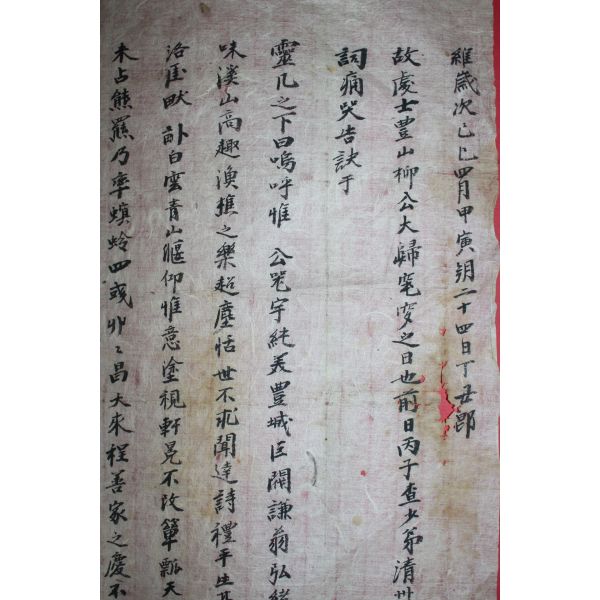 維歲次己巳四月甲寅朔二十四日丁丑卽
故處士豊山柳公大歸窀穸之日也前日丙子査少弟淸州
詞痛哭告訣于
靈几之下曰嗚呼惟 公器宇純美豊城巨閥謙翁弘緖
味溪山高趣漁樵之樂超塵恬世不求聞達詩禮平生
洛厓畎 白雲靑山偃仰惟意塗視軒冕不改簞瓢天
未占熊羆乃率螟蛉四彧卯〻昌大來程善家之慶不